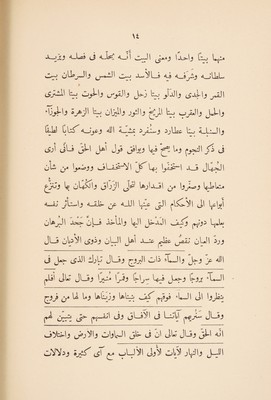 ١٤
منهما بيتًا واحدًا ومعنى البيت أنّه يحلّه فى فصله ويزيد
سلطانه وشرفه فيه فالأسد بيت الشمس والسرطان بيت
القمر والجدى والدلو بيتا زحل والقوس والحوت بيتا المشترى
والحمل والعقرب بيتا المرّيخ والثور والميزان بيتا الزهرة والجوزآء
والسنبلة بيتا عطارد وسنُفرد بمشيّة اللّه وعونه كتابًا لطيفًا
فى ذكر النجوم وما يصحّ فيها ويوافق قول أهل الحقّ فأنّى أرى
الجهّال قد استخفّوا بها كلّ الاستخفاف ووضعوا من شأن
متعاطيها وصغّروا من اقدارها تنحلّى الزرّاق والكهّان بها وتنزّع
أبوابها الى الأحكام التى غيّبها اللّه عن خلقه واستأثر نفسه
بعلمها دونهم وكيف المدخل اليها والمأخذ فإنّ جحد البرهان
وردّ العيان نقص عظيم عند أهل البيان وذوى الأديان قال
اللّه عزّ وجلّ والسمآء ذات البروج وقال تبارك الذى جعل فى
السمآء بروجًا وجعل فيها سراجًا وقمرًا مُنيرًا وقال تعالى أفلم
ينظروا الى السمآء فوقهم كيف بنيناها وزيّنّاها وما لها من فروج
وقال سنُريهم آياتنا فى الآفاق وفى انفسهم حتّى يتبيّن لهم
أنّه الحقّ وقال تعالى انّ فى خلق السماوات والارض واختلاف
الليل والنهار لآيات لأولى الألباب مع آى كثيرة ودلالات